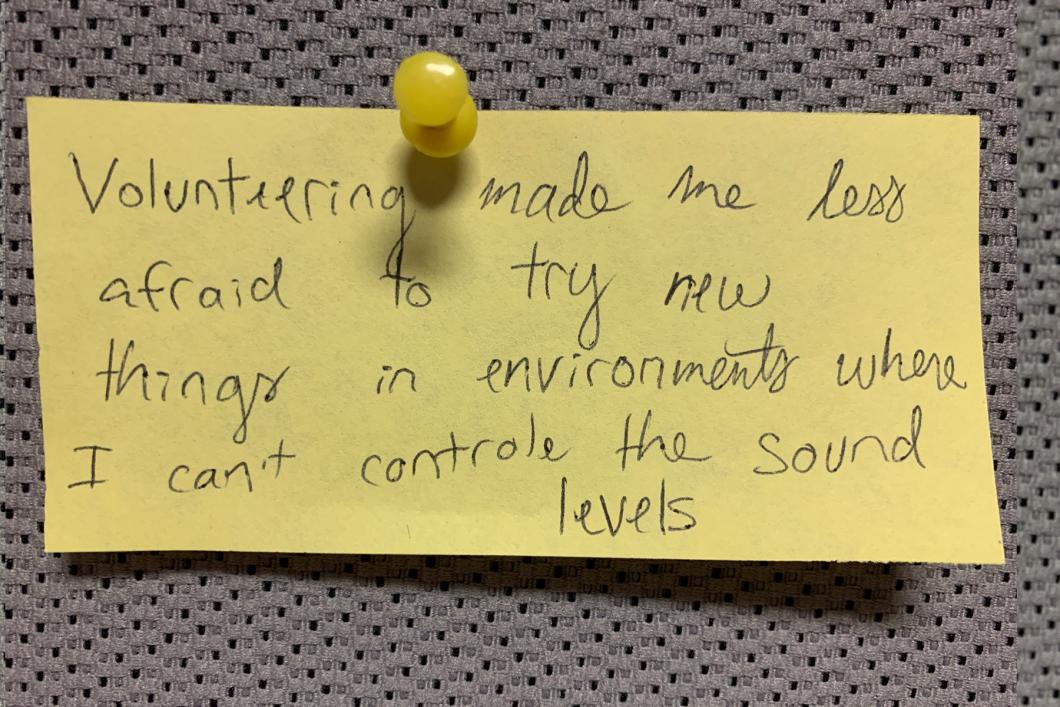 Volunteering made me less
afraid to try new
things in environments where
I can't controle the sound
levels